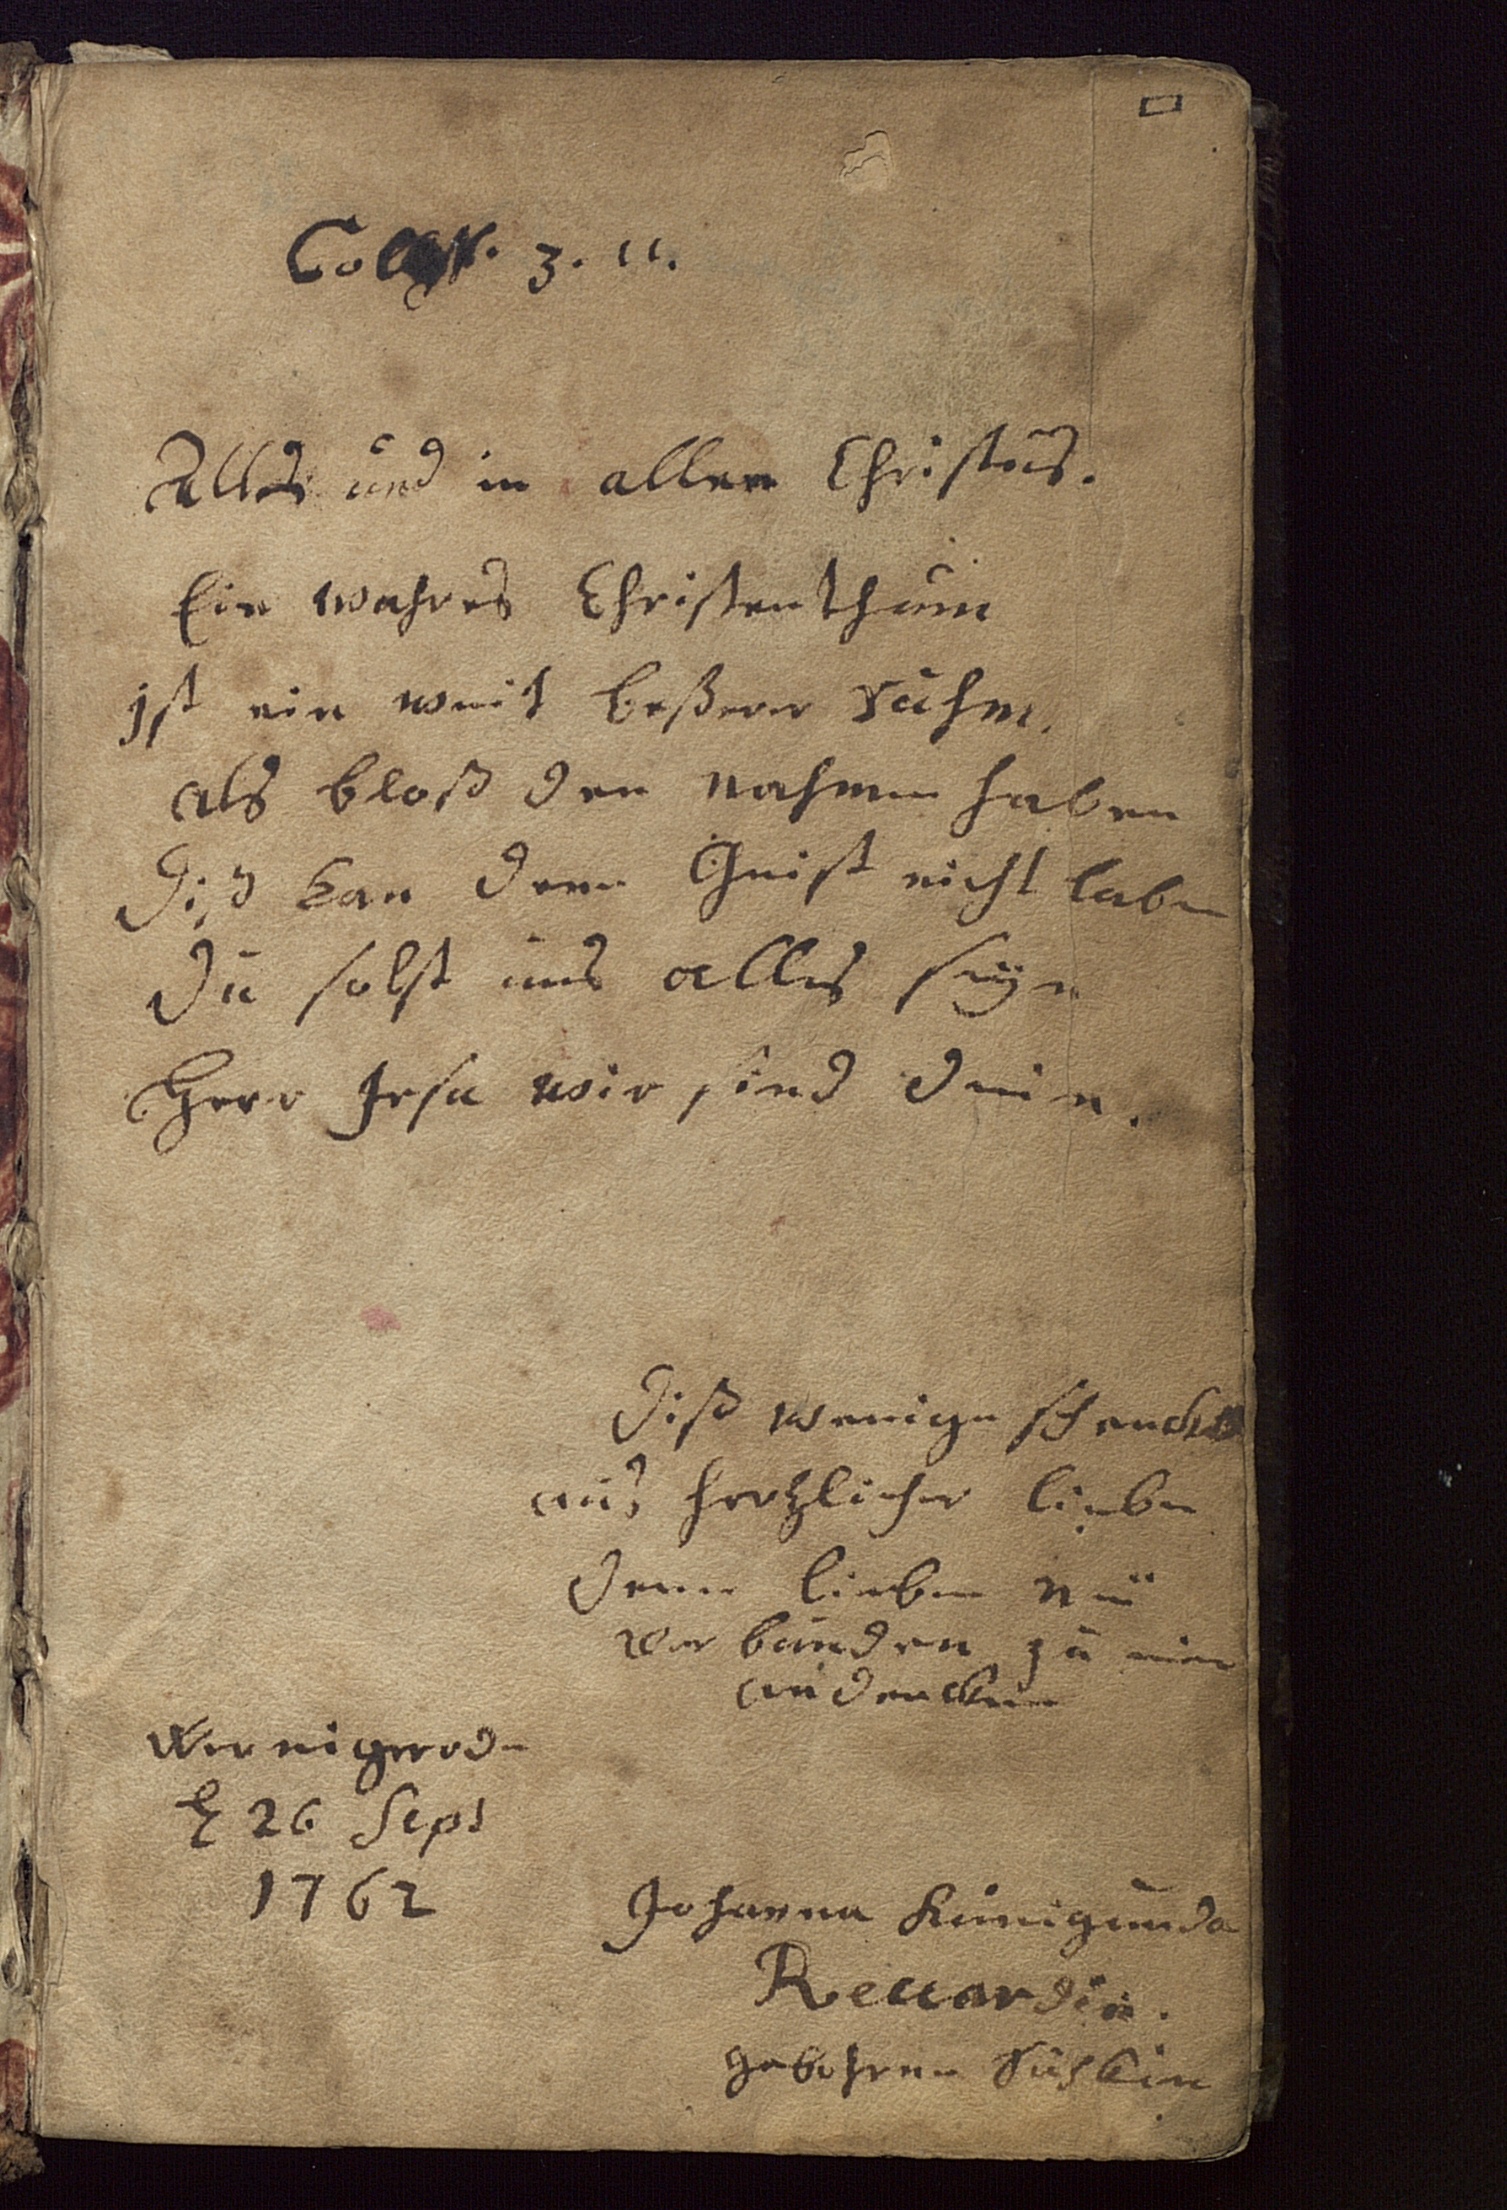 Coloss. 3. 11.
Alles und in allen Christus.
Ein wahres Christenthum
ist ein weit beßerer ruhm.
als bloß den nahmen haben
Diß kan dem Geist nicht laben
Du solst uns alles seyn
Herr Jesu wir sind dein.
Diß wenige schencket
aus hertzlicher liebe
denn lieben
verbunden zu ein
andencken
Wernigerode
d 26 Sept
1762
Johanna Kunigunda
Reccardin.
gebohrne